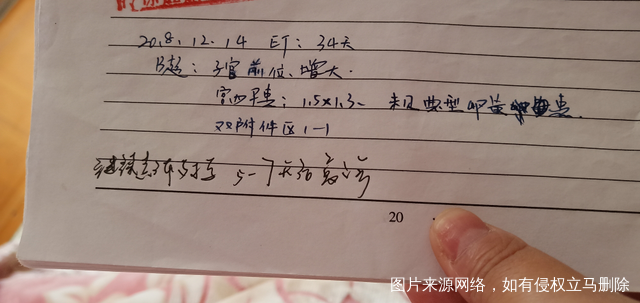 2018.12.14 ET: 34天
B超: 子宫前位、增大.
宫内早孕: 1.5×1.3、未见典型卵黄囊
双附件区(-)
5-7天后复诊
20
图片来源网络，如有侵权立马删除